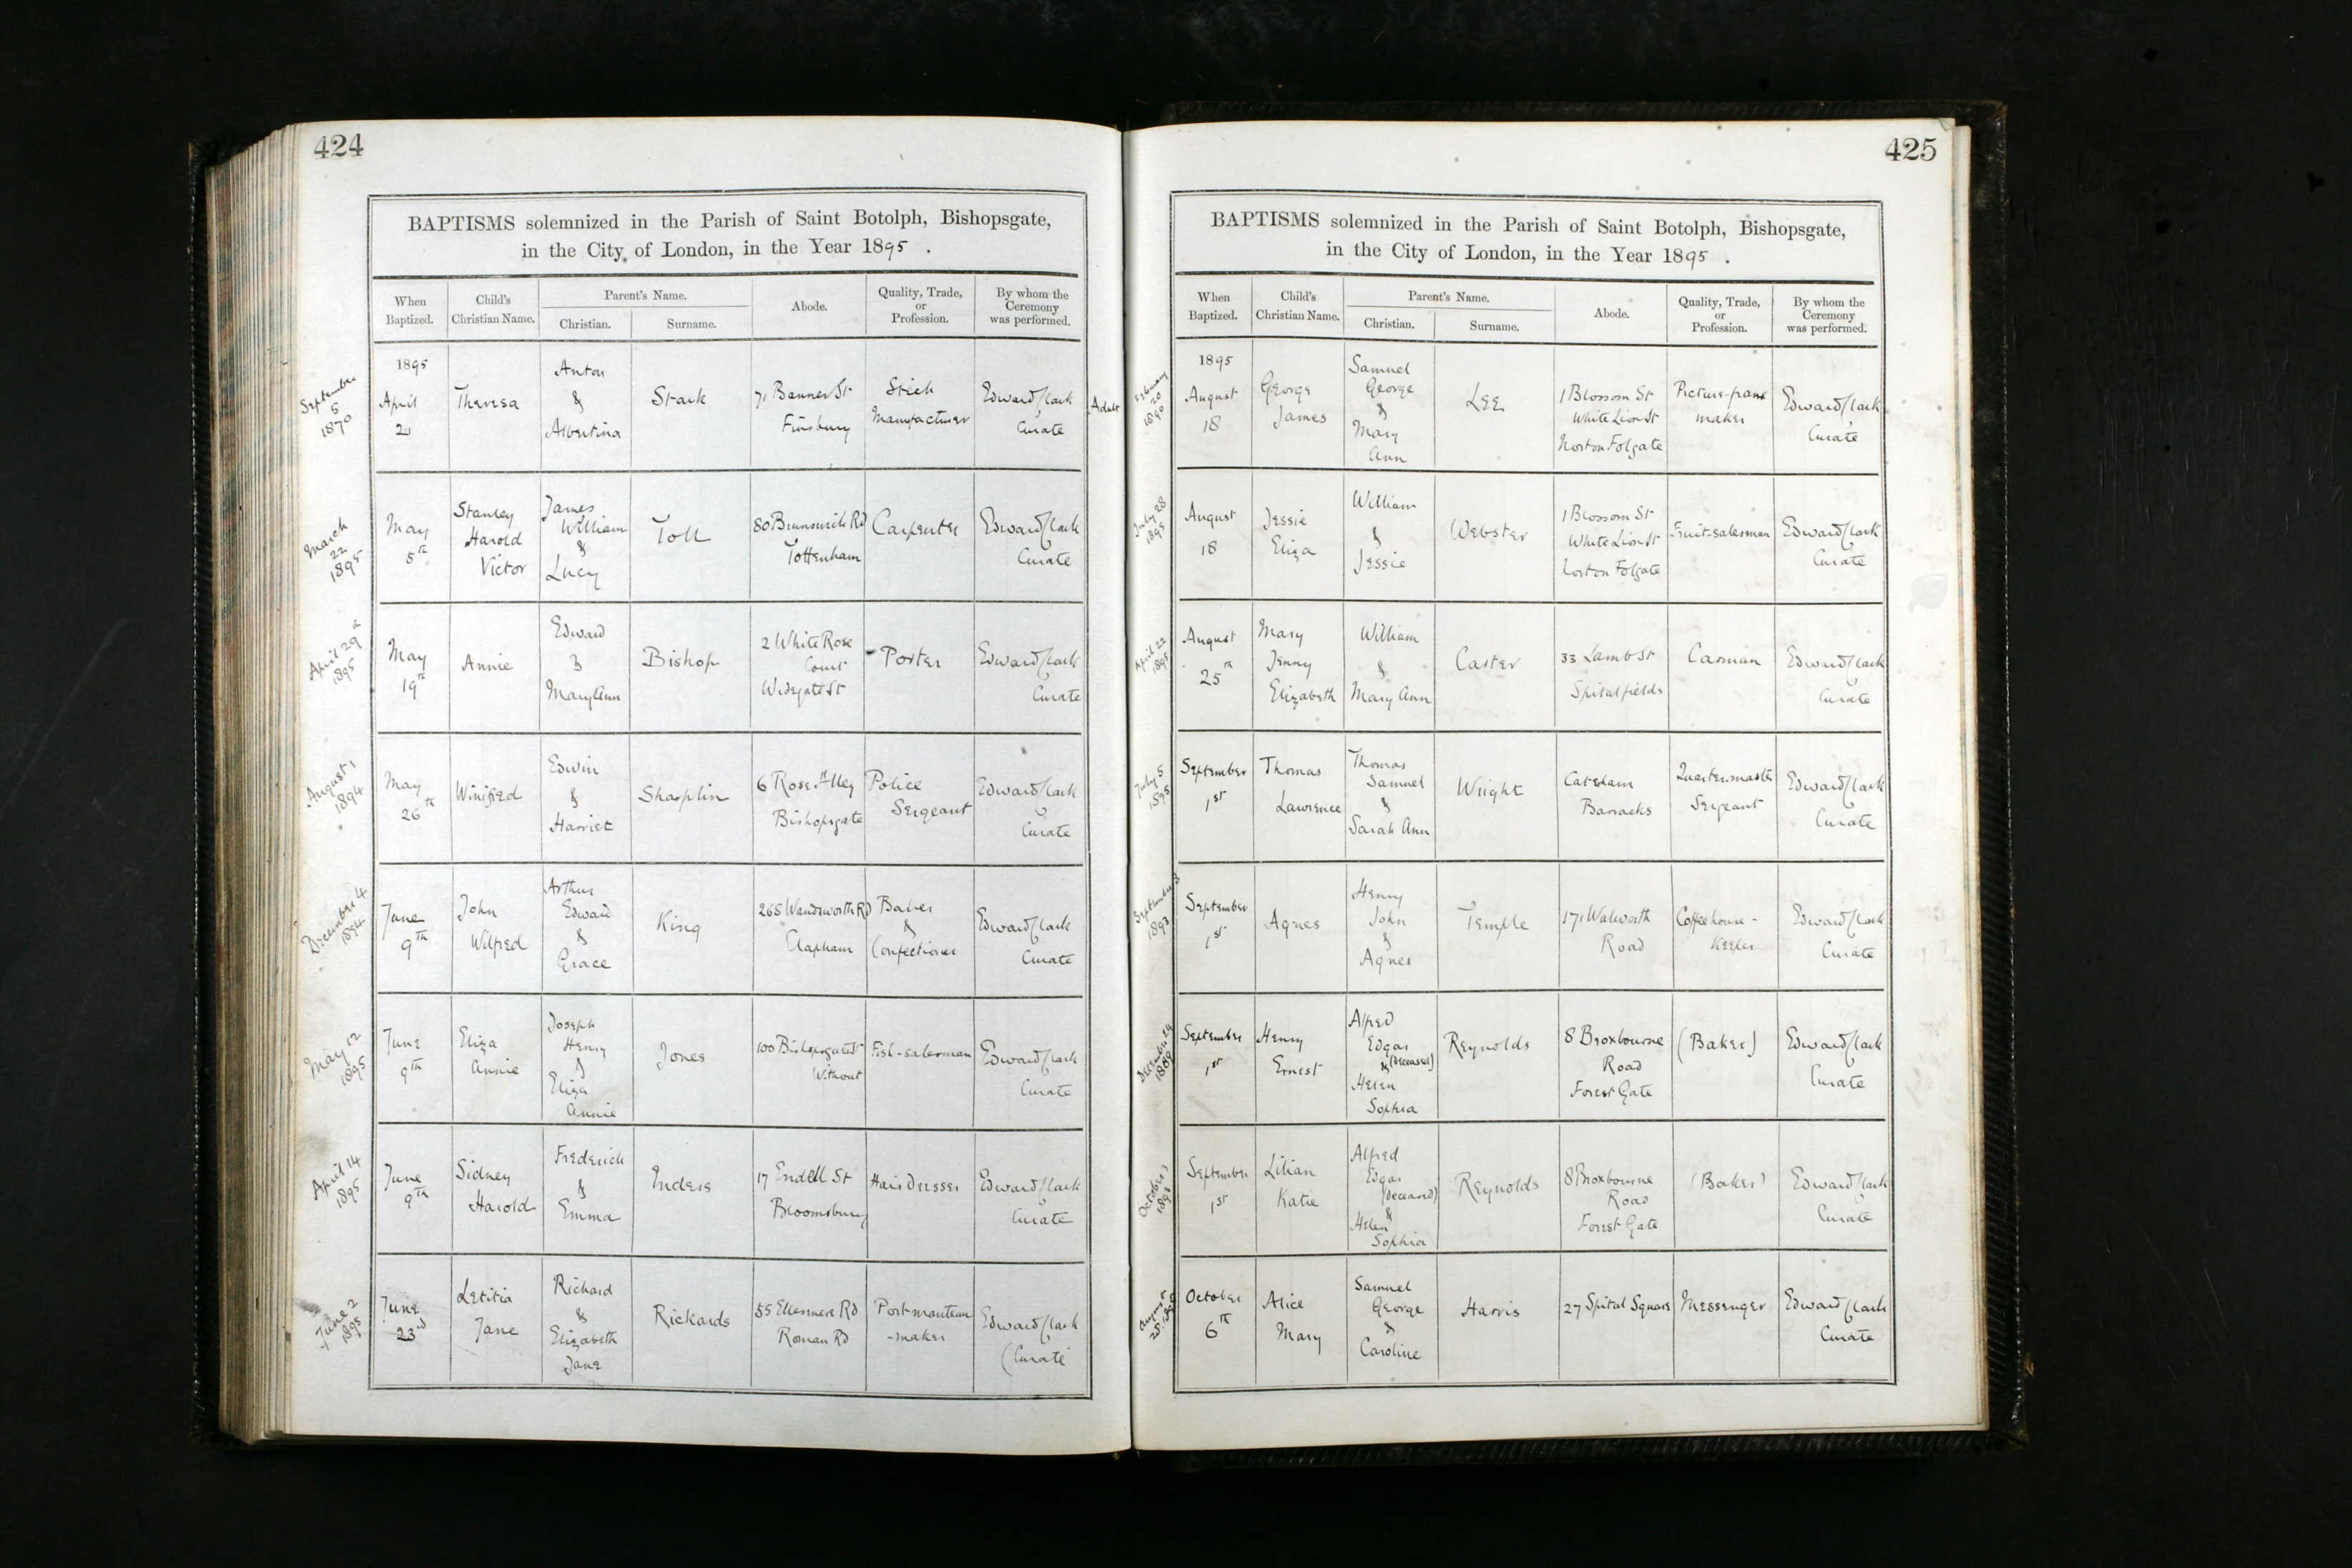 424
BAPTISMS solemnized in the Parish of Saint Botolph, Bishopsgate,
in the City of London, in the Year 1895 .
When Baptized.
Child's Christian Name.
Parent's Name.
Christian.
Surname.
Abode.
Quality, Trade, or Profession.
By whom the Ceremony was performed.
September 5 1870
1895 April 21
Theresa
Anton & Albertina
Stark
71 Banner St Finsbury
Stick Manufacturer
Edward Clark Curate
Adult
March 22 1895
May 5th
Stanley Harold Victor
James William & Lucy
Toll
80 Brunswick Rd Tottenham
Carpenter
Edward Clark Curate
April 29th 1895
May 19th
Annie
Edward & Mary Ann
Bishop
2 White Rose Court Widegate St
Porter
Edward Clark Curate
August 1 1894
May 26th
Winifred
Edwin & Harriet
Sharplin
6 Rose Alley Bishopsgate
Police Sergeant
Edward Clark Curate
December 4 1894
June 9th
John Wilfred
Arthur Edward & Grace
King
268 Wandsworth Rd Clapham
Baker & Confectioner
Edward Clark Curate
May 12 1895
June 9th
Eliza Annie
Joseph Henry & Eliza Annie
Jones
100 Bishopsgate St Without
Fish-salesman
Edward Clark Curate
April 14 1895
June 9th
Sidney Harold
Frederick & Emma
Enders
17 Endell St Bloomsbury
Hair Dresser
Edward Clark Curate
June 2 1895
June 23rd
Letitia Jane
Richard & Elizabeth Jane
Rickards
55 Ellesmere Rd Roman Rd
Portmanteau -maker
Edward Clark Curate
425
BAPTISMS solemnized in the Parish of Saint Botolph, Bishopsgate,
in the City of London, in the Year 1895 .
When Baptized.
Child's Christian Name.
Parent's Name.
Christian.
Surname.
Abode.
Quality, Trade, or Profession.
By whom the Ceremony was performed.
February 20 1890
1895 August 18
George James
Samuel George & Mary Ann
Lee
1 Blossom St White Lion St Norton Folgate
Picture-frame maker
Edward Clark Curate
July 28 1895
August 18
Jessie Eliza
William & Jessie
Webster
1 Blossom St White Lion St Norton Folgate
Fruit-salesman
Edward Clark Curate
April 22 1895
August 25th
Mary Jenny Elizabeth
William & Mary Ann
Carter
33 Lamb St Spitalfields
Carman
Edward Clark Curate
July 5 1895
September 1st
Thomas Lawrence
Thomas Samuel & Sarah Ann
Wright
Caterham Barracks
Quarter-master Sergeant
Edward Clark Curate
September 3 1893
September 1st
Agnes
Henry John & Agnes
Temple
171 Walworth Road
Coffee house-keeper
Edward Clark Curate
December 24 1889
September 1st
Henry Ernest
Alfred Edgar (deceased) & Helen Sophia
Reynolds
8 Broxbourne Road Forest Gate
(Baker)
Edward Clark Curate
October 3
September 1st
Lilian Katie
Alfred Edgar (deceased) & Helen Sophia
Reynolds
8 Broxbourne Road Forest Gate
(Baker)
Edward Clark Curate
August 25
October 6th
Alice Mary
Samuel George & Caroline
Harris
27 Spital Square
Messenger
Edward Clark Curate